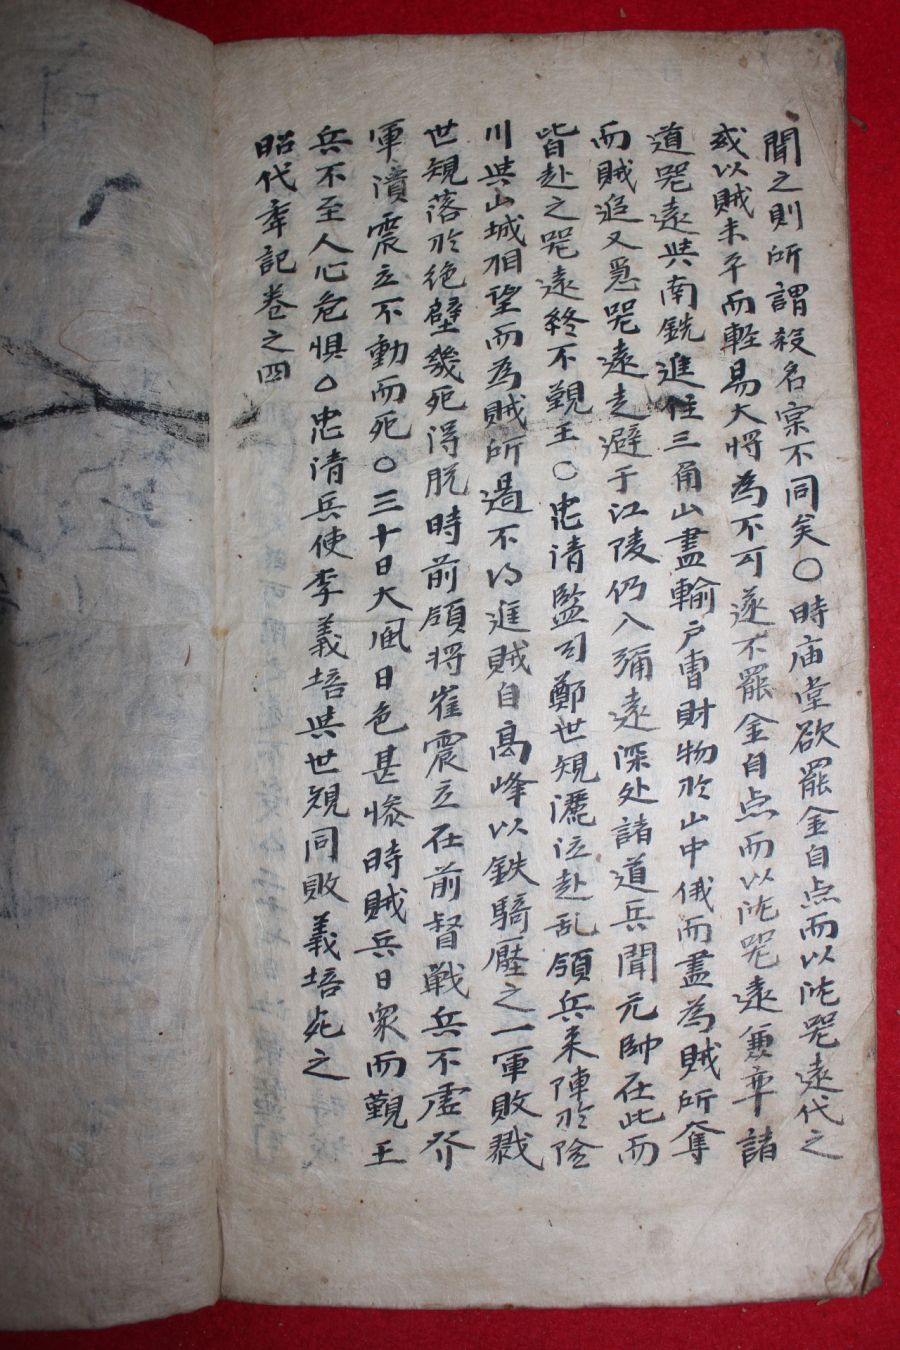 聞之則所謂殺名宲不同矣○時庙堂欲罷金自点而以沈咒遠代之
或以賊未平而輕易大將為不可遂不罷金自点而以沈咒遠兼率諸
道咒遠与南銑進住三角山盡輸戶曺財物於山中俄而盡為賊所奪
而賊追又急咒遠走避于江陵仍入彌遠深処諸道兵聞元帥在此而
皆赴之咒遠終不覲王○忠清監司鄭世䂓灑泣赴乱領兵来陣於險
川与山城相望而為賊所遏不得進賊自高峰以鉄騎壓之一軍敗戮
世䂓落於绝壁幾死得脱時前領將崔震立在前督戰兵不虛發
軍潰震立不動而死○三十日大風日色甚惨時賊兵日衆而覲王
兵不至人心危惧○忠清兵使李義培与世䂓同敗義培死之
昭代年記卷之四